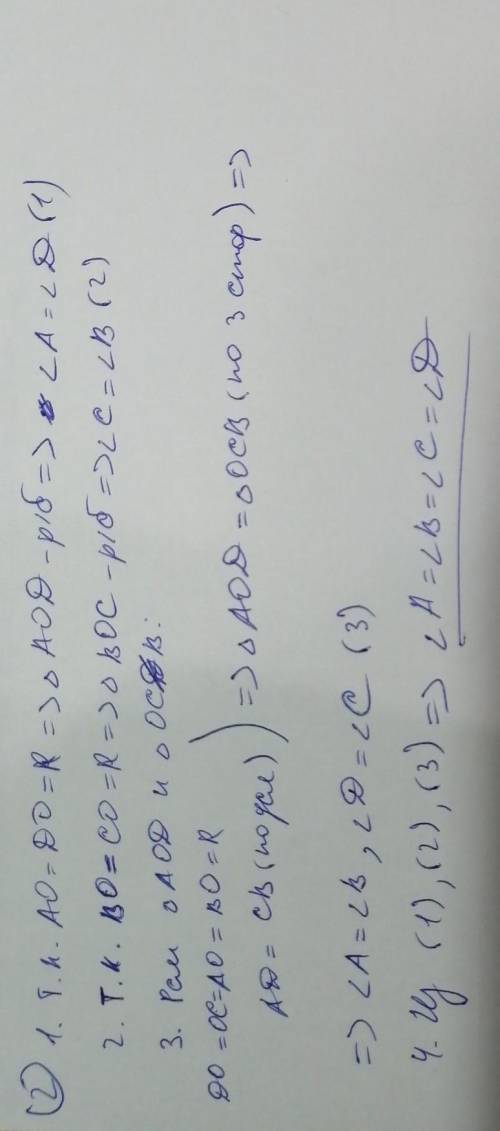 (2) 1. Т.к. AO = DO = R => △ AOD - р/б => ∠A = ∠D (1)
2. Т.к. BO = CO = R => △ BOC - р/б => ∠C = ∠B (2)
3. Рсм △ AOD и △ OCB:
DO = OC = AO = BO = R
AD = CB (по усл) ) => △ AOD = △ OCB (по 3 стор) =>
=> ∠A = ∠B, ∠D = ∠C (3)
4. Из (1), (2), (3) => ∠A = ∠B = ∠C = ∠D